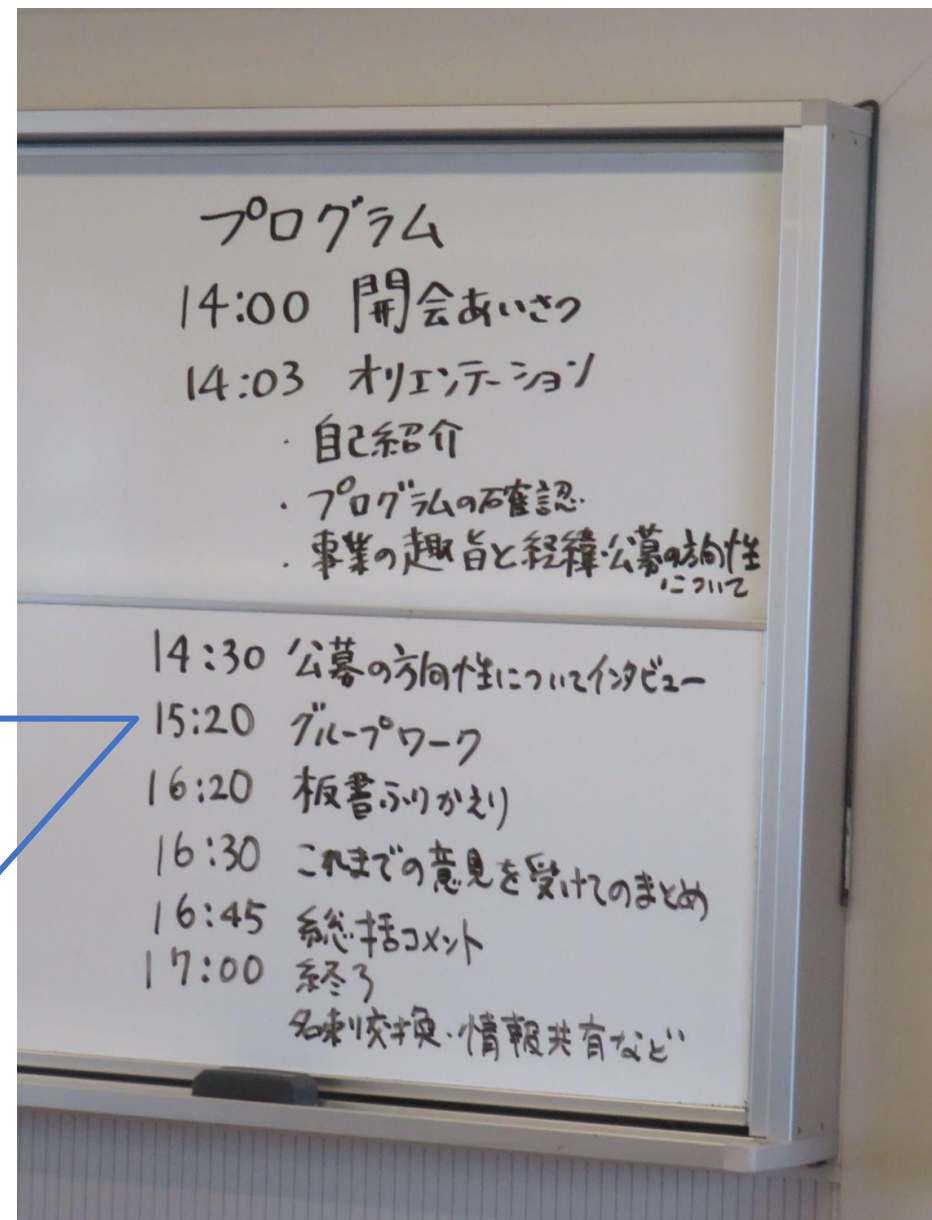 プログラム
14:00 開会あいさつ
14:03 オリエンテーション
・自己紹介
・プログラムの確認
・事業の趣旨と経緯・公募の方向性
について
14:30 公募の方向性についてインタビュー
15:20 グループワーク
16:20 板書ふりかえり
16:30 これまでの意見を受けてのまとめ
16:45 総括コメント
17:00 終了
名刺交換・情報共有など